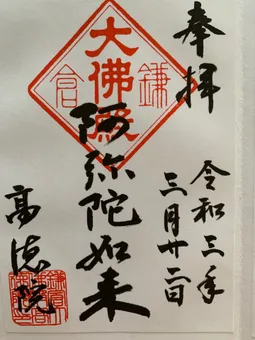 奉拝
令和三年
三月廿二日
大佛殿
鎌倉
阿弥陀如来
高徳院